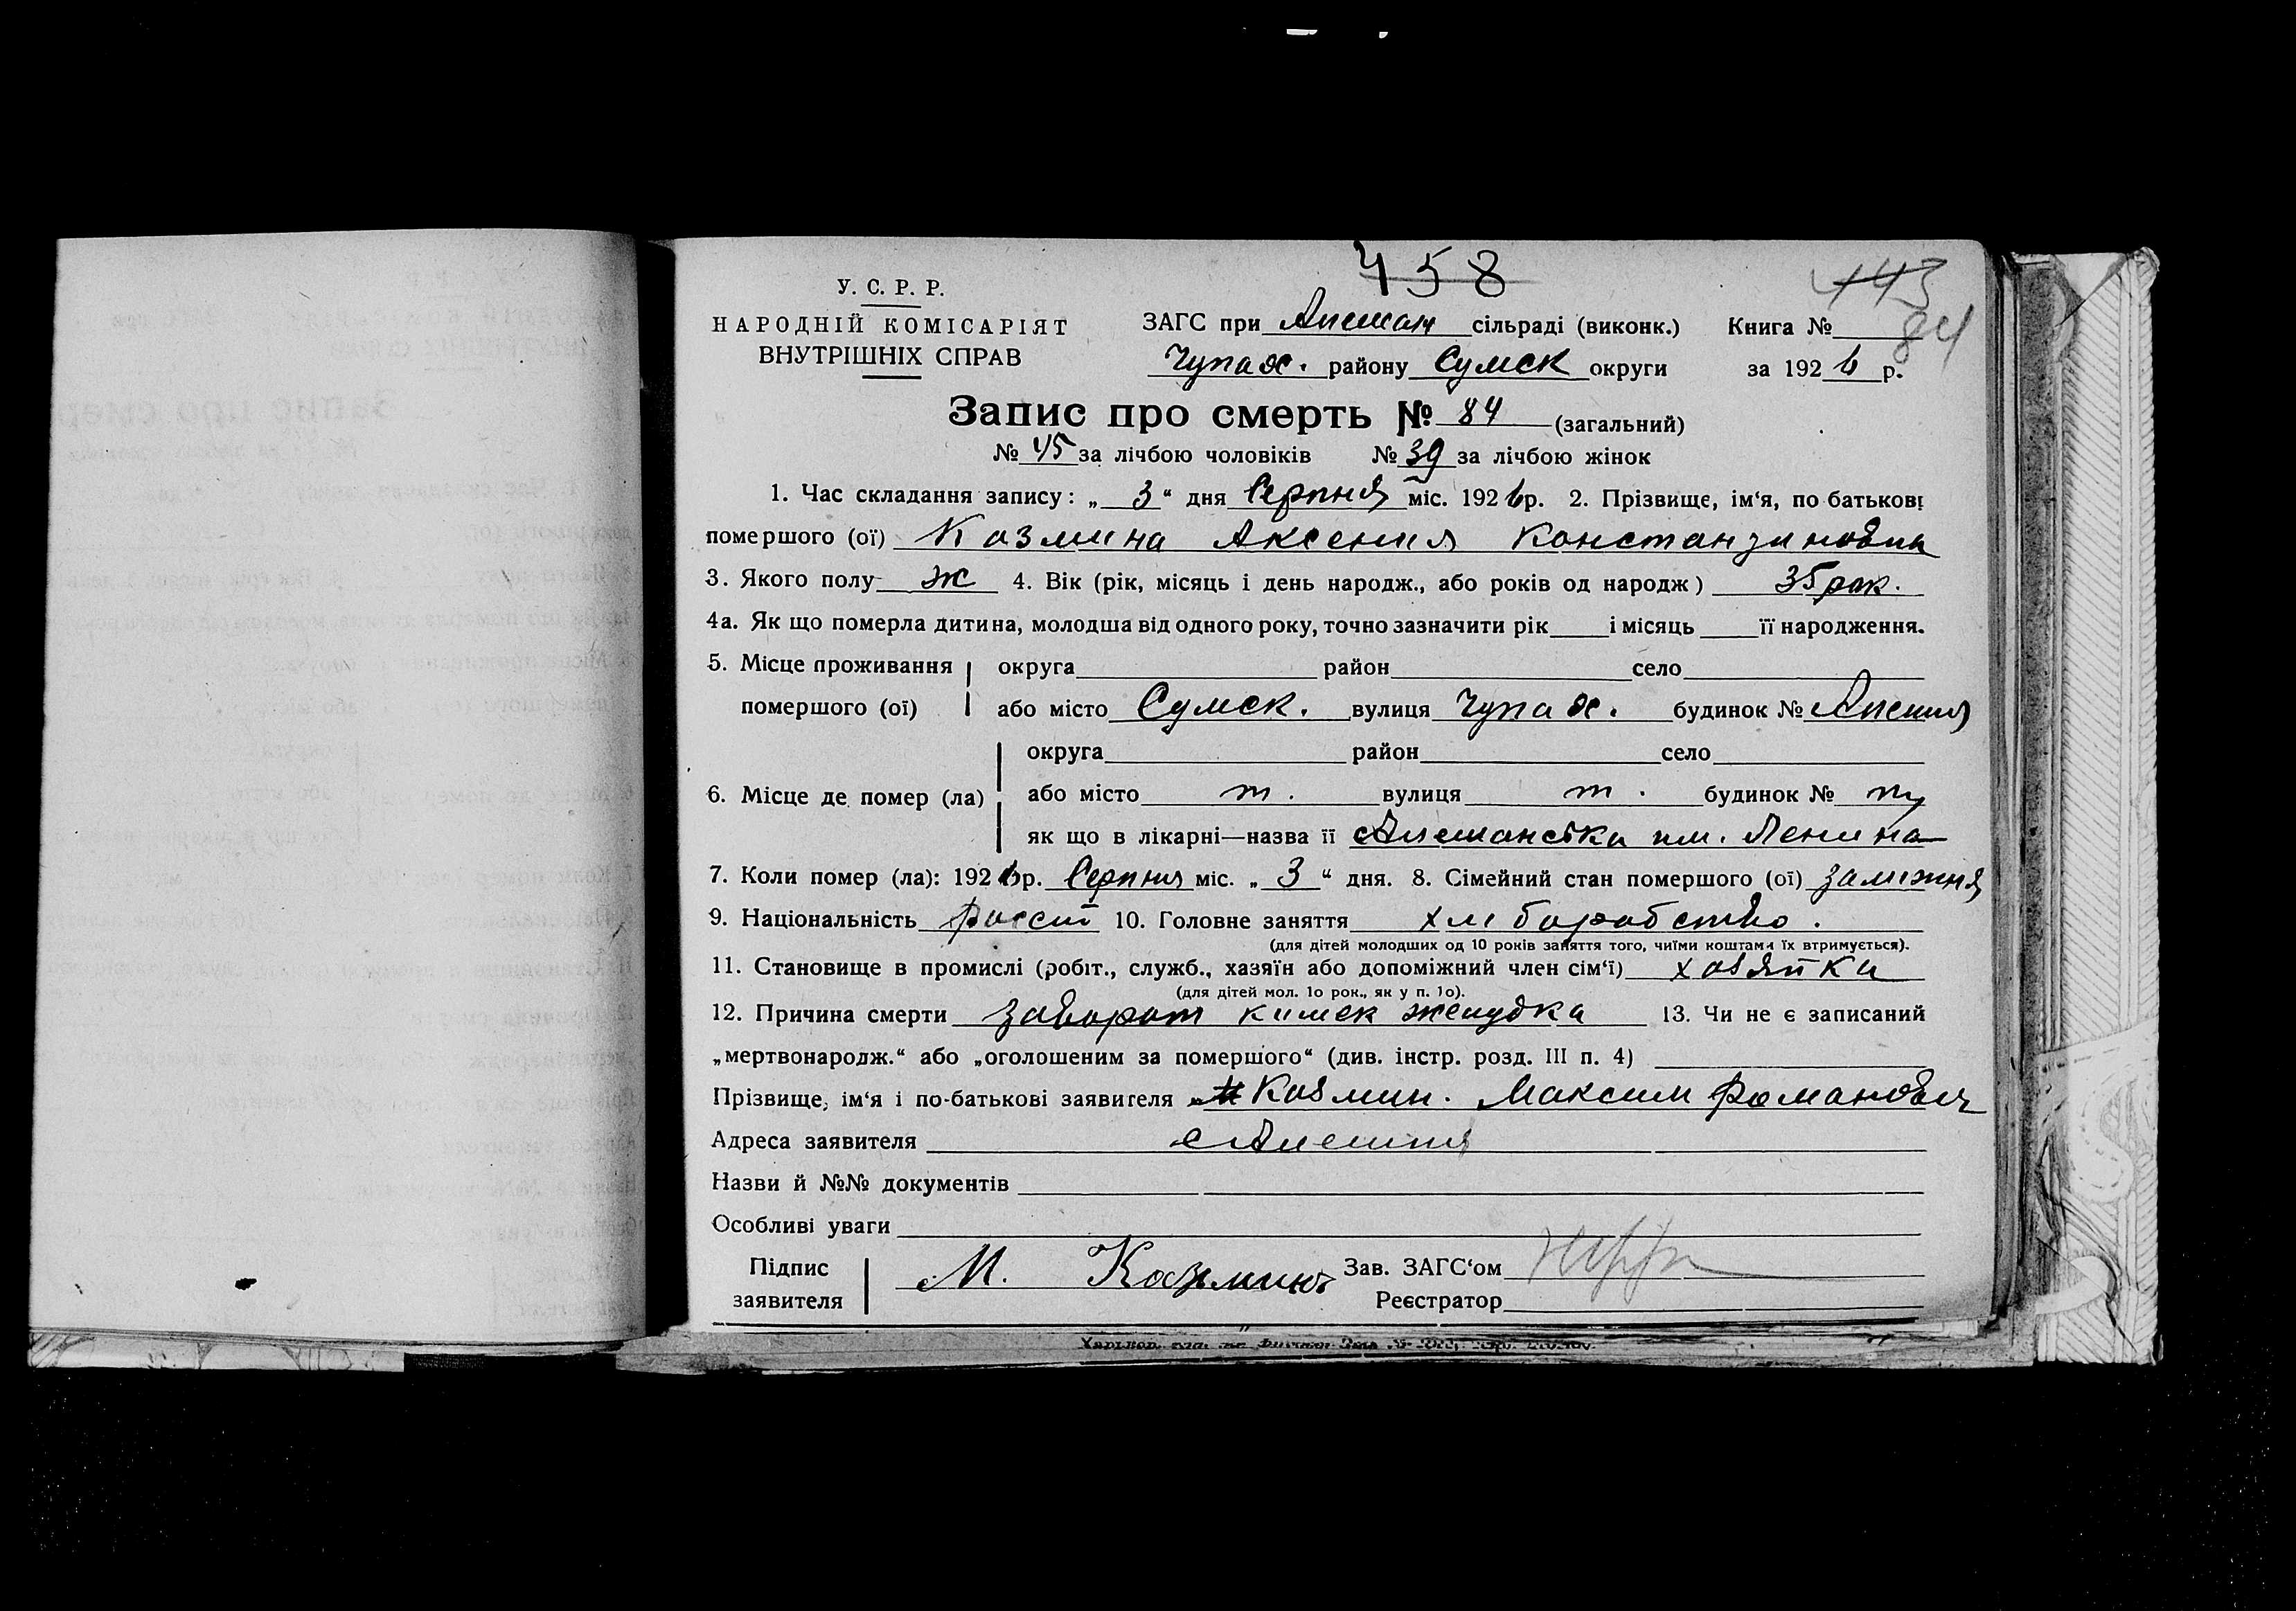 458
443
84
У. С. Р. Р.
НАРОДНІЙ КОМІСАРІЯТ
ВНУТРІШНІХ СПРАВ
ЗАГС при Апешан сільраді (виконк.) Книга №
Чупах. району Сумск округи за 192 6 р.
Запис про смерть № 84 (загальний)
№ 45 за лічбою чоловіків № 39 за лічбою жінок
1. Час складання запису: „ 3 “ дня Серпня міс. 192 6 р. 2. Прізвище, ім‘я, по батькові
помершого (ої) Козмина Аксения Констанзиновна
3. Якого полу ж 4. Вік (рік, місяць і день народж., або років од народж) 35 рок.
4а. Як що померла дитина, молодша від одного року, точно зазначити рік і місяць її народження.
5. Місце проживання округа район село
помершого (ої) або місто Сумск. вулиця Чупах. будинок №
округа район село
6. Місце де помер (ла) або місто т. вулиця т. будинок №
як що в лікарні—назва її им. Ленина
7. Коли помер (ла): 192 6 р. Серпня міс. „ 3 “ дня. 8. Сімейний стан помершого (ої) замижня
9. Національність россі 10. Головне заняття хлиборобство.
(для дітей молодших од 10 років заняття того, чиїми коштами їх втримується).
11. Становище в промислі (робіт., служб., хазяїн або допоміжний член сім‘ї) хозяйка
(для дітей мол. 1о рок., як у п. 1о).
12. Причина смерти заворот кишек желудка 13. Чи не є записаний
„мертвонародж.“ або „оголошеним за помершого“ (див. інстр. розд. III п. 4)
Прізвище, ім‘я і по-батькові заявителя Козмин. Максим Романович
Адреса заявителя
Назви й №№ документів
Особливі уваги
Підпис
заявителя М. Козьминъ Зав. ЗАГС‘ом
Реєстратор